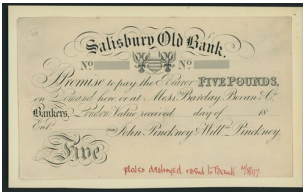 Salisbury Old Bank
No No
I Promise to pay the Bearer FIVE POUNDS,
on Demand here or at Messrs Barclay Bevan & Co
Bankers, London Value received day of 18
Entd For John Pinckney & Willm Pinckney
Five
plates destroyed sent to Bank